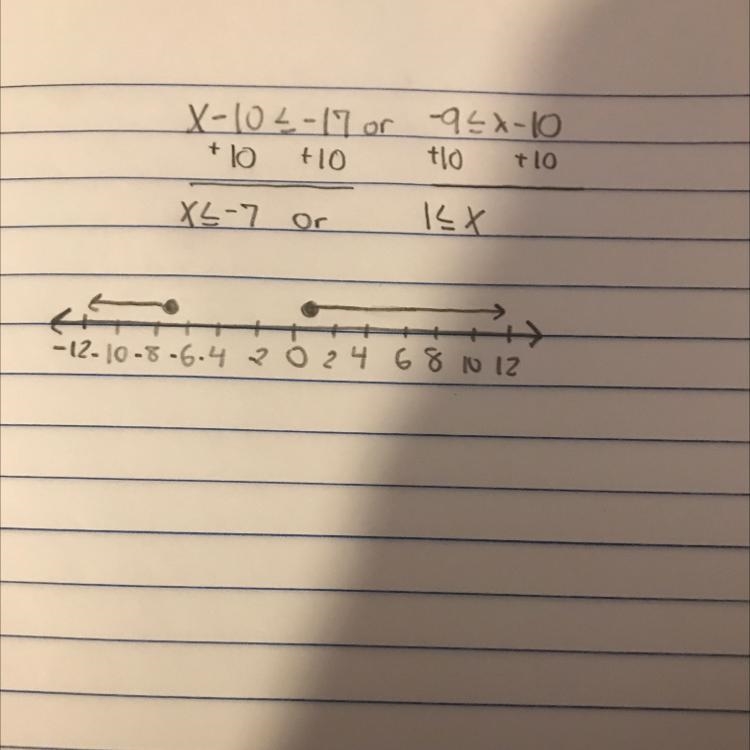 x-10≤-17 or -9≤x-10
+10 +10 +10 +10
x≤-7 or 1≤x
-12-10-8-6-4 -2 0 2 4 6 8 10 12